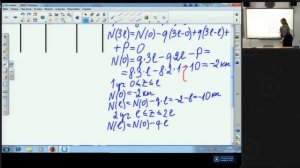 N(3ℓ)=N(0)-q(3ℓ-0)+q(3ℓ-ℓ)+
+P=0
N(0)=q·3ℓ-q2ℓ-P=
=8·3·ℓ-8·2·1+10=-2кн
1уч 0≤z≤ℓ
N(0)=-2кн
N(ℓ)=N(0)-q·ℓ=-2-8=-10кн
2уч ℓ≤z≤2ℓ
N(ℓ)=N(0)-q·ℓ